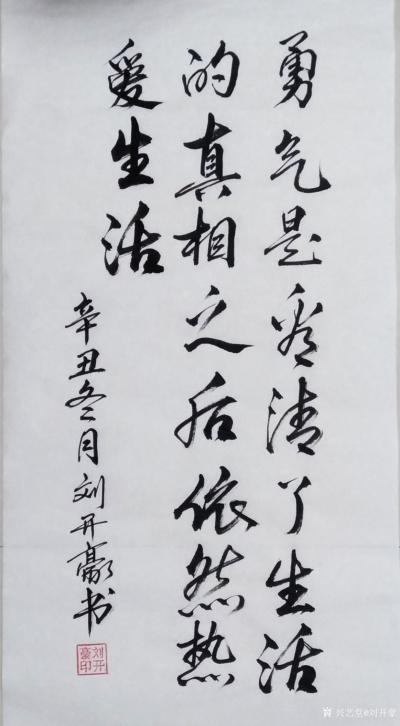 勇气是看清了生活
的真相之后依然热
爱生活
辛丑冬月刘开豪书
刘开
豪印
兴艺堂@刘开豪